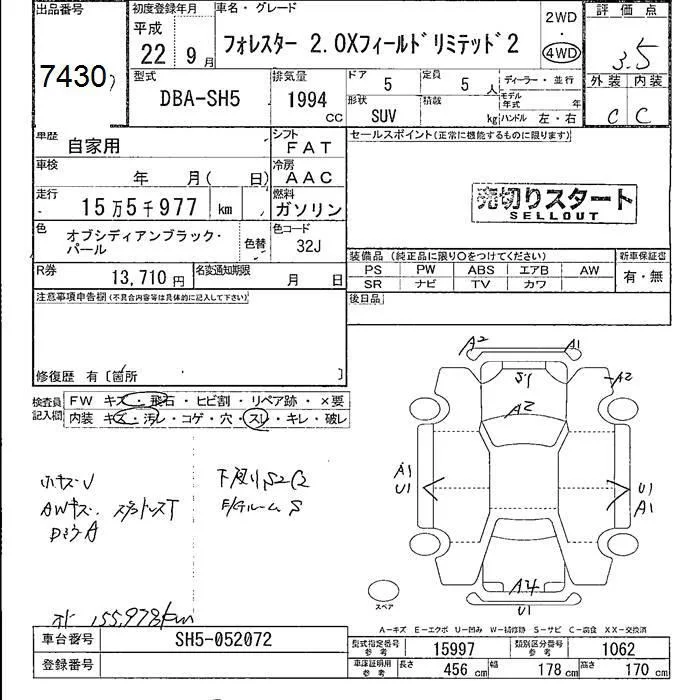 出品番号
7430
初度登録年月
平成
22年 9月
車名・グレード
フォレスター 2.0Xフィールドリミテッド2
2WD
・
4WD
評価点
3.5
型式
DBA-SH5
排気量
1994
CC
ドア
5
定員
5 人
ディーラー・並行
モデル年式 年
形状
SUV
積載
kg
ハンドル 左・右
外装 内装
C C
車歴
自家用
シフト
FAT
セールスポイント(正常に機能するものに限ります)
車検
年 月( 日)
冷房
AAC
走行
15万5千977 km
燃料
ガソリン
売切りスタート
SELLOUT
色
オブシディアンブラック・
パール
色替
色コード
32J
装備品(純正品に限り○をつけてください)
新車保証書
PS PW ABS エアB AW
有・無
SR ナビ TV カワ
R券
13,710円
名変通知期限
月 日
後日品
注意事項申告欄(不具合内容等は具体的に記入して下さい)
修復歴 有〔箇所 〕
検査員
記入欄
FW キズ・飛石・ヒビ割・リペア跡・×要
内装 キズ・汚レ・コゲ・穴・スレ・キレ・破レ
A2 A1
S1
A2
A2
A1
U1
U1
A1
A4
U1
小キズ
AWキズ
下廻りS2C2
S
155,978km
スペア
A-キズ E-エクボ U-凹み W-補修跡 S-サビ C-腐食 XX-交換済
車台番号
SH5-052072
型式指定番号
参考
15997
類別区分番号
参考
1062
登録番号
車庫証明用
参考
長さ
456 cm
幅
178 cm
高さ
170 cm